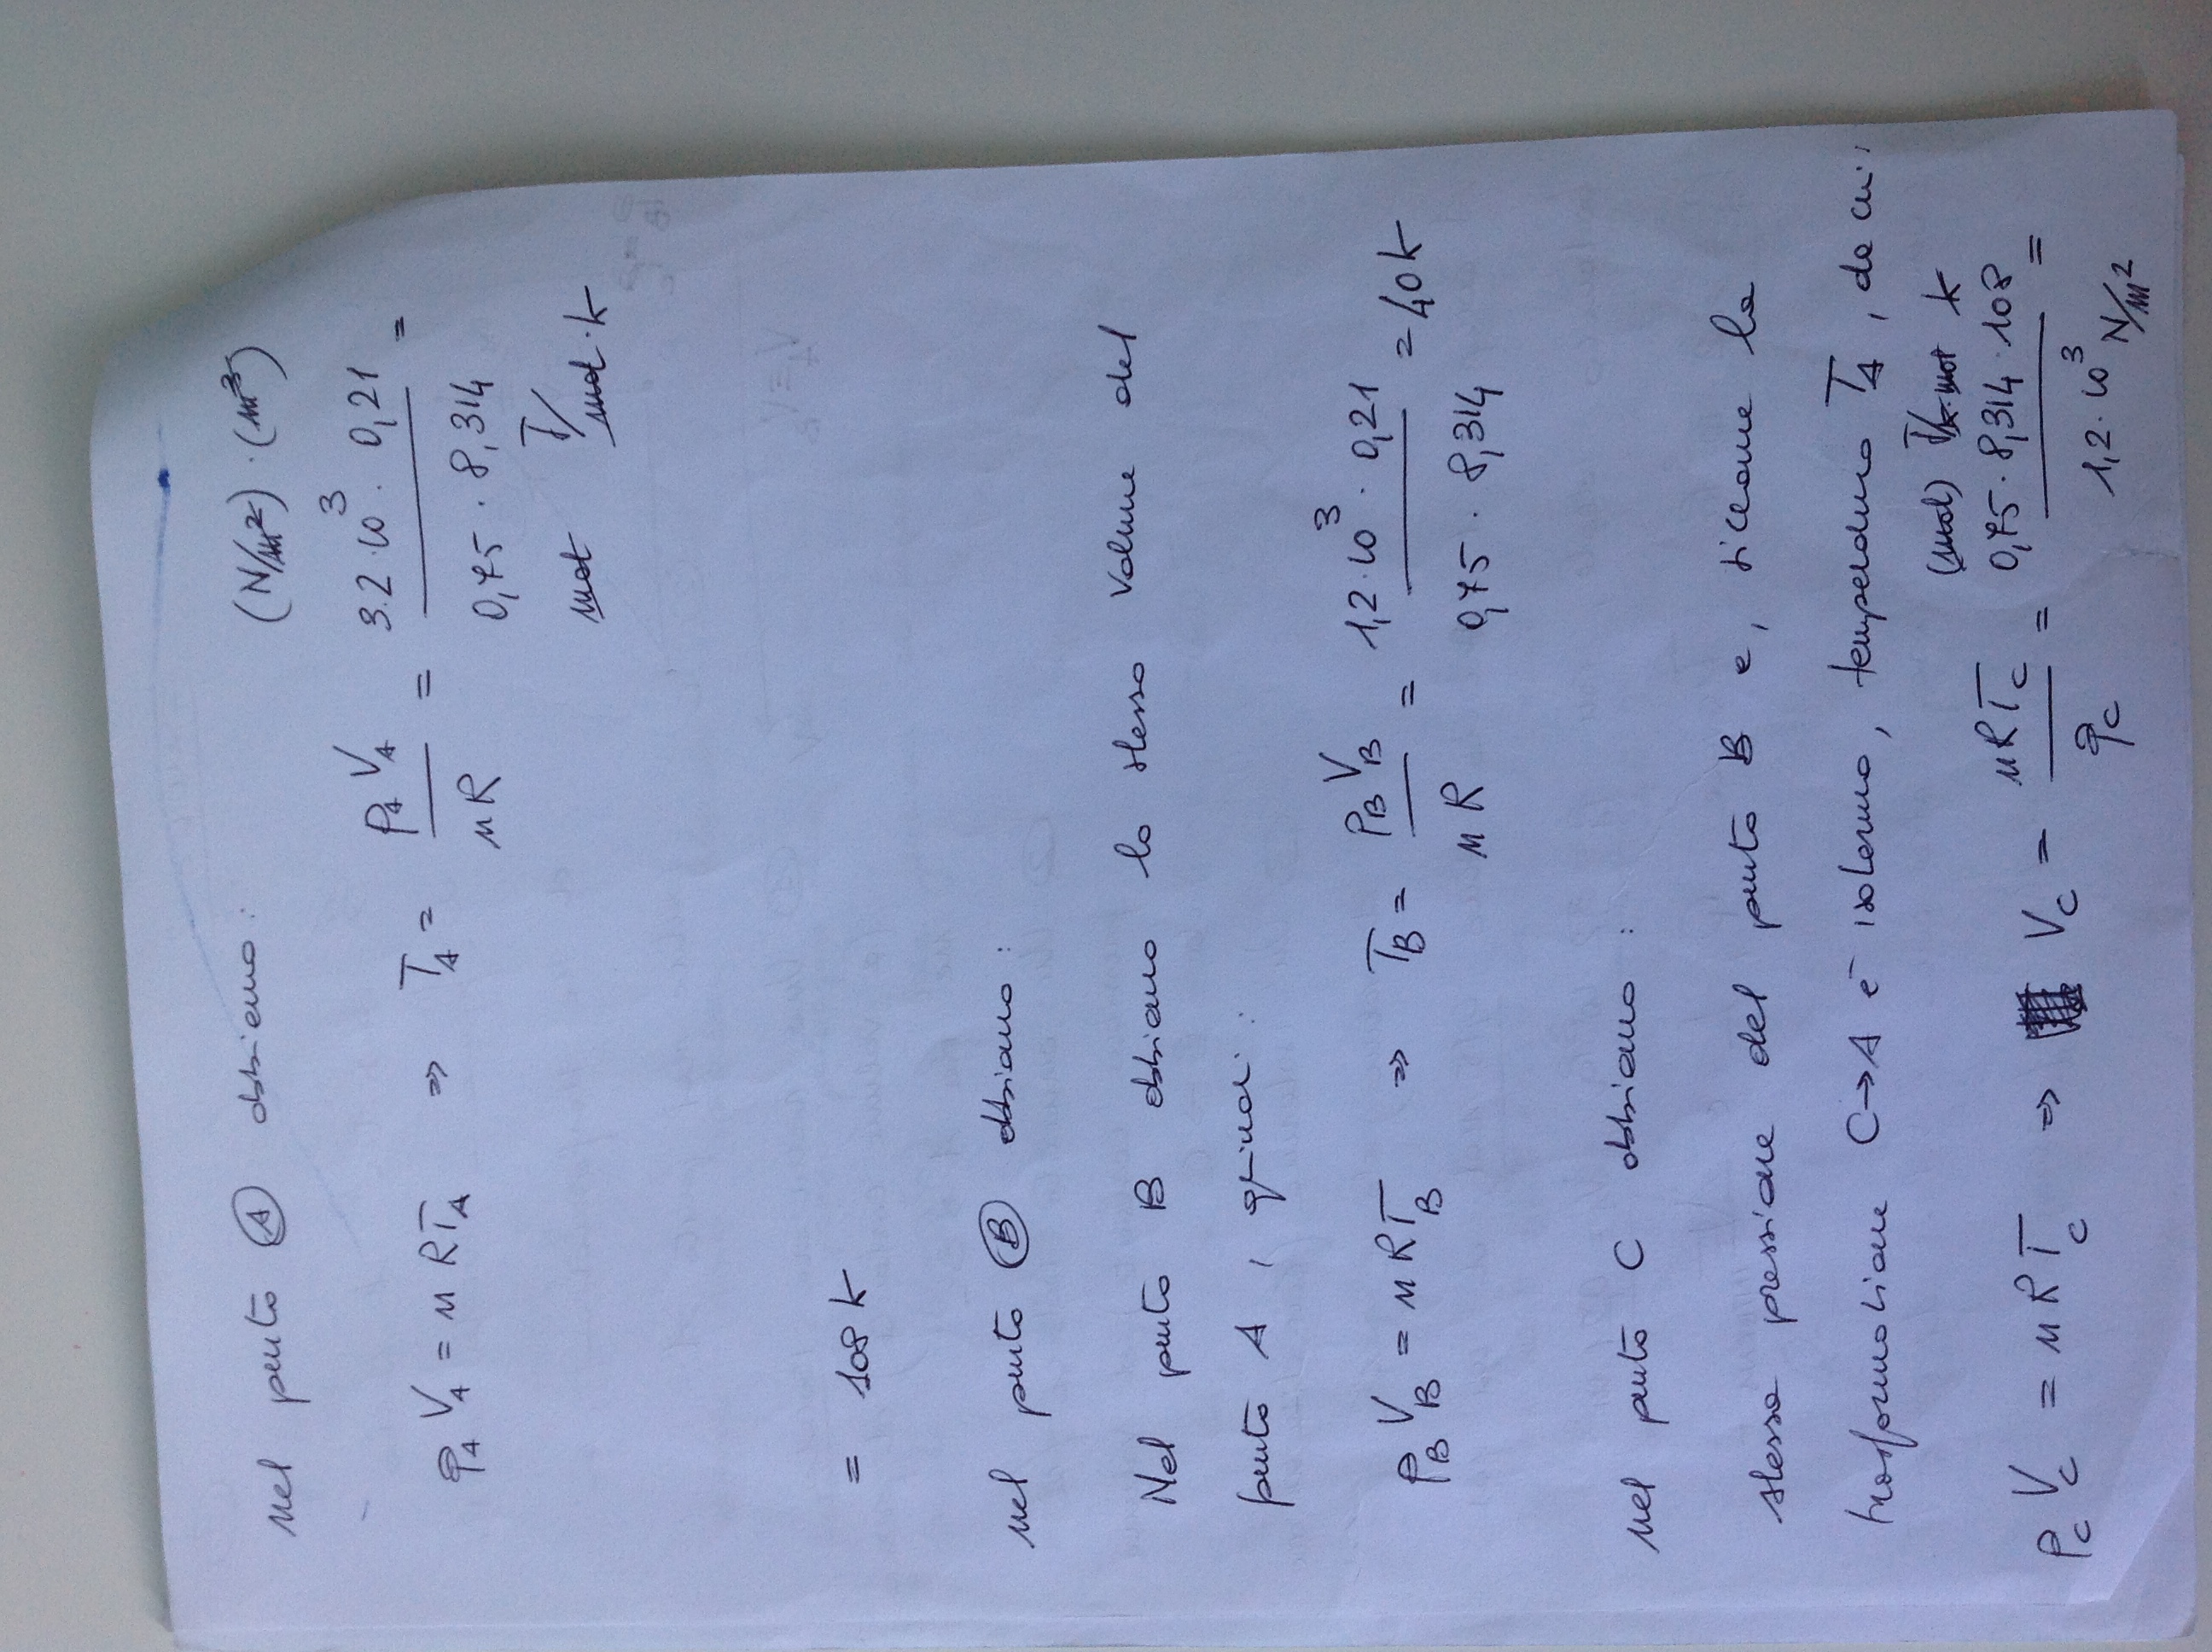 nel punto A abbiamo:
(N/m²) · (m³)
p_A V_A = nRT_A ⇒ T_A = p_A V_A / nR = 3.2·10³ · 0,21 / 0,75 · 8,314 =
mol J/mol·k
= 108 k
nel punto B abbiamo:
Nel punto B abbiamo lo stesso volume del
punto A, quindi:
p_B V_B = nRT_B ⇒ T_B = p_B V_B / nR = 1,2·10³ · 0,21 / 0,75 · 8,314 = 40 k
nel punto C abbiamo:
stessa pressione del punto B e, siccome la
trasformazione C→A è isoterma, temperatura T_A, da cui:
(mol) J/k·mol k
p_C V_C = nRT_C ⇒ V_C = nRT_C / p_C = 0,75 · 8,314 · 108 / 1,2·10³ N/m² =